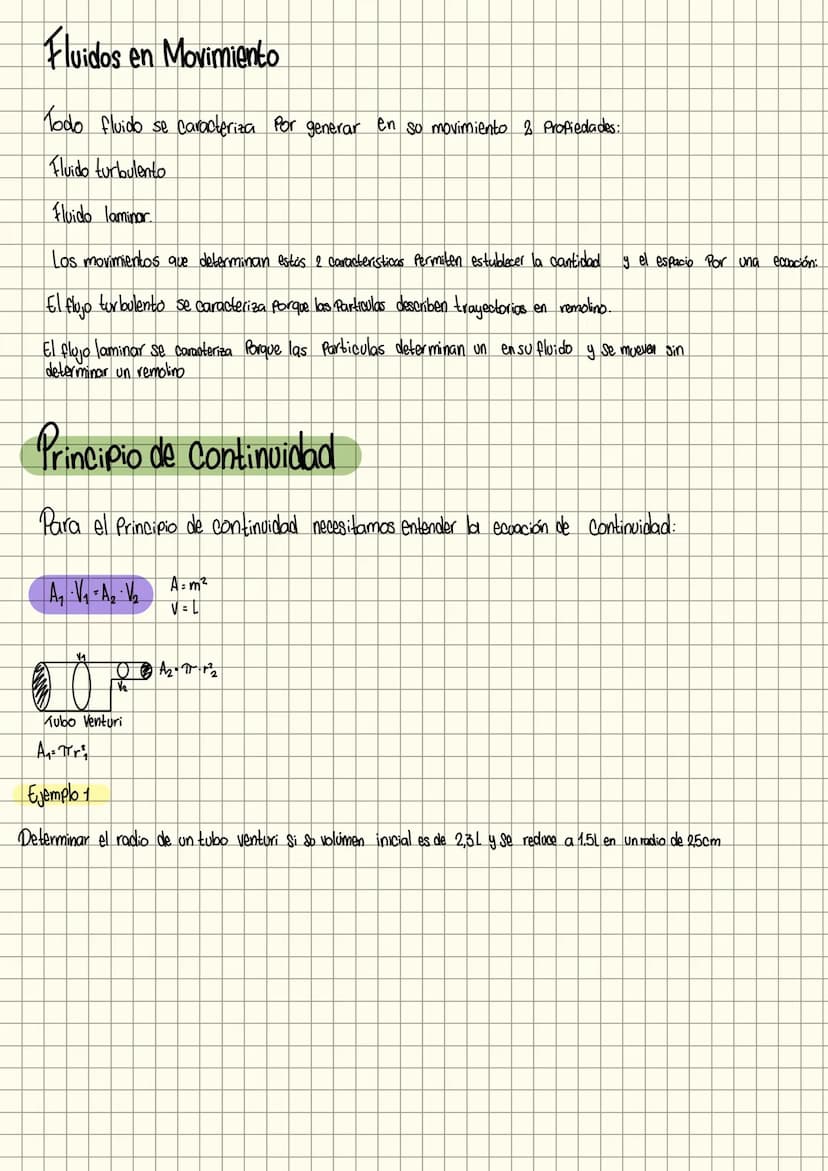 Fluidos en Movimiento
Todo fluido se caracteriza Por generar en so movimiento 2 Propiedades:
Fluido turbulento
Fluido laminar.
Los movimientos que determinan estas 2 caracteristicas Permiten establecer la cantidad y el espacio Por una ecuación:
El flujo turbulento se caracteriza Porque las Particulas describen trayectorias en remolino.
El flujo laminar se caracteriza Porque las Particulas determinan un en su fluido y se mueven sin
determinar un remolino
Principio de Continuidad
Para el Principio de continuidad necesitamos entender la ecuación de Continuidad:
A₁·V₁=A₂·V₂ A=m²
V=L
V₁
A₂=π·r²₂
V₂
Tubo Venturi
A₁=πr²₁
Ejemplo 1
Determinar el radio de un tubo venturi si so volúmen inicial es de 2,3L y se reduce a 1.5L en un radio de 2,5cm